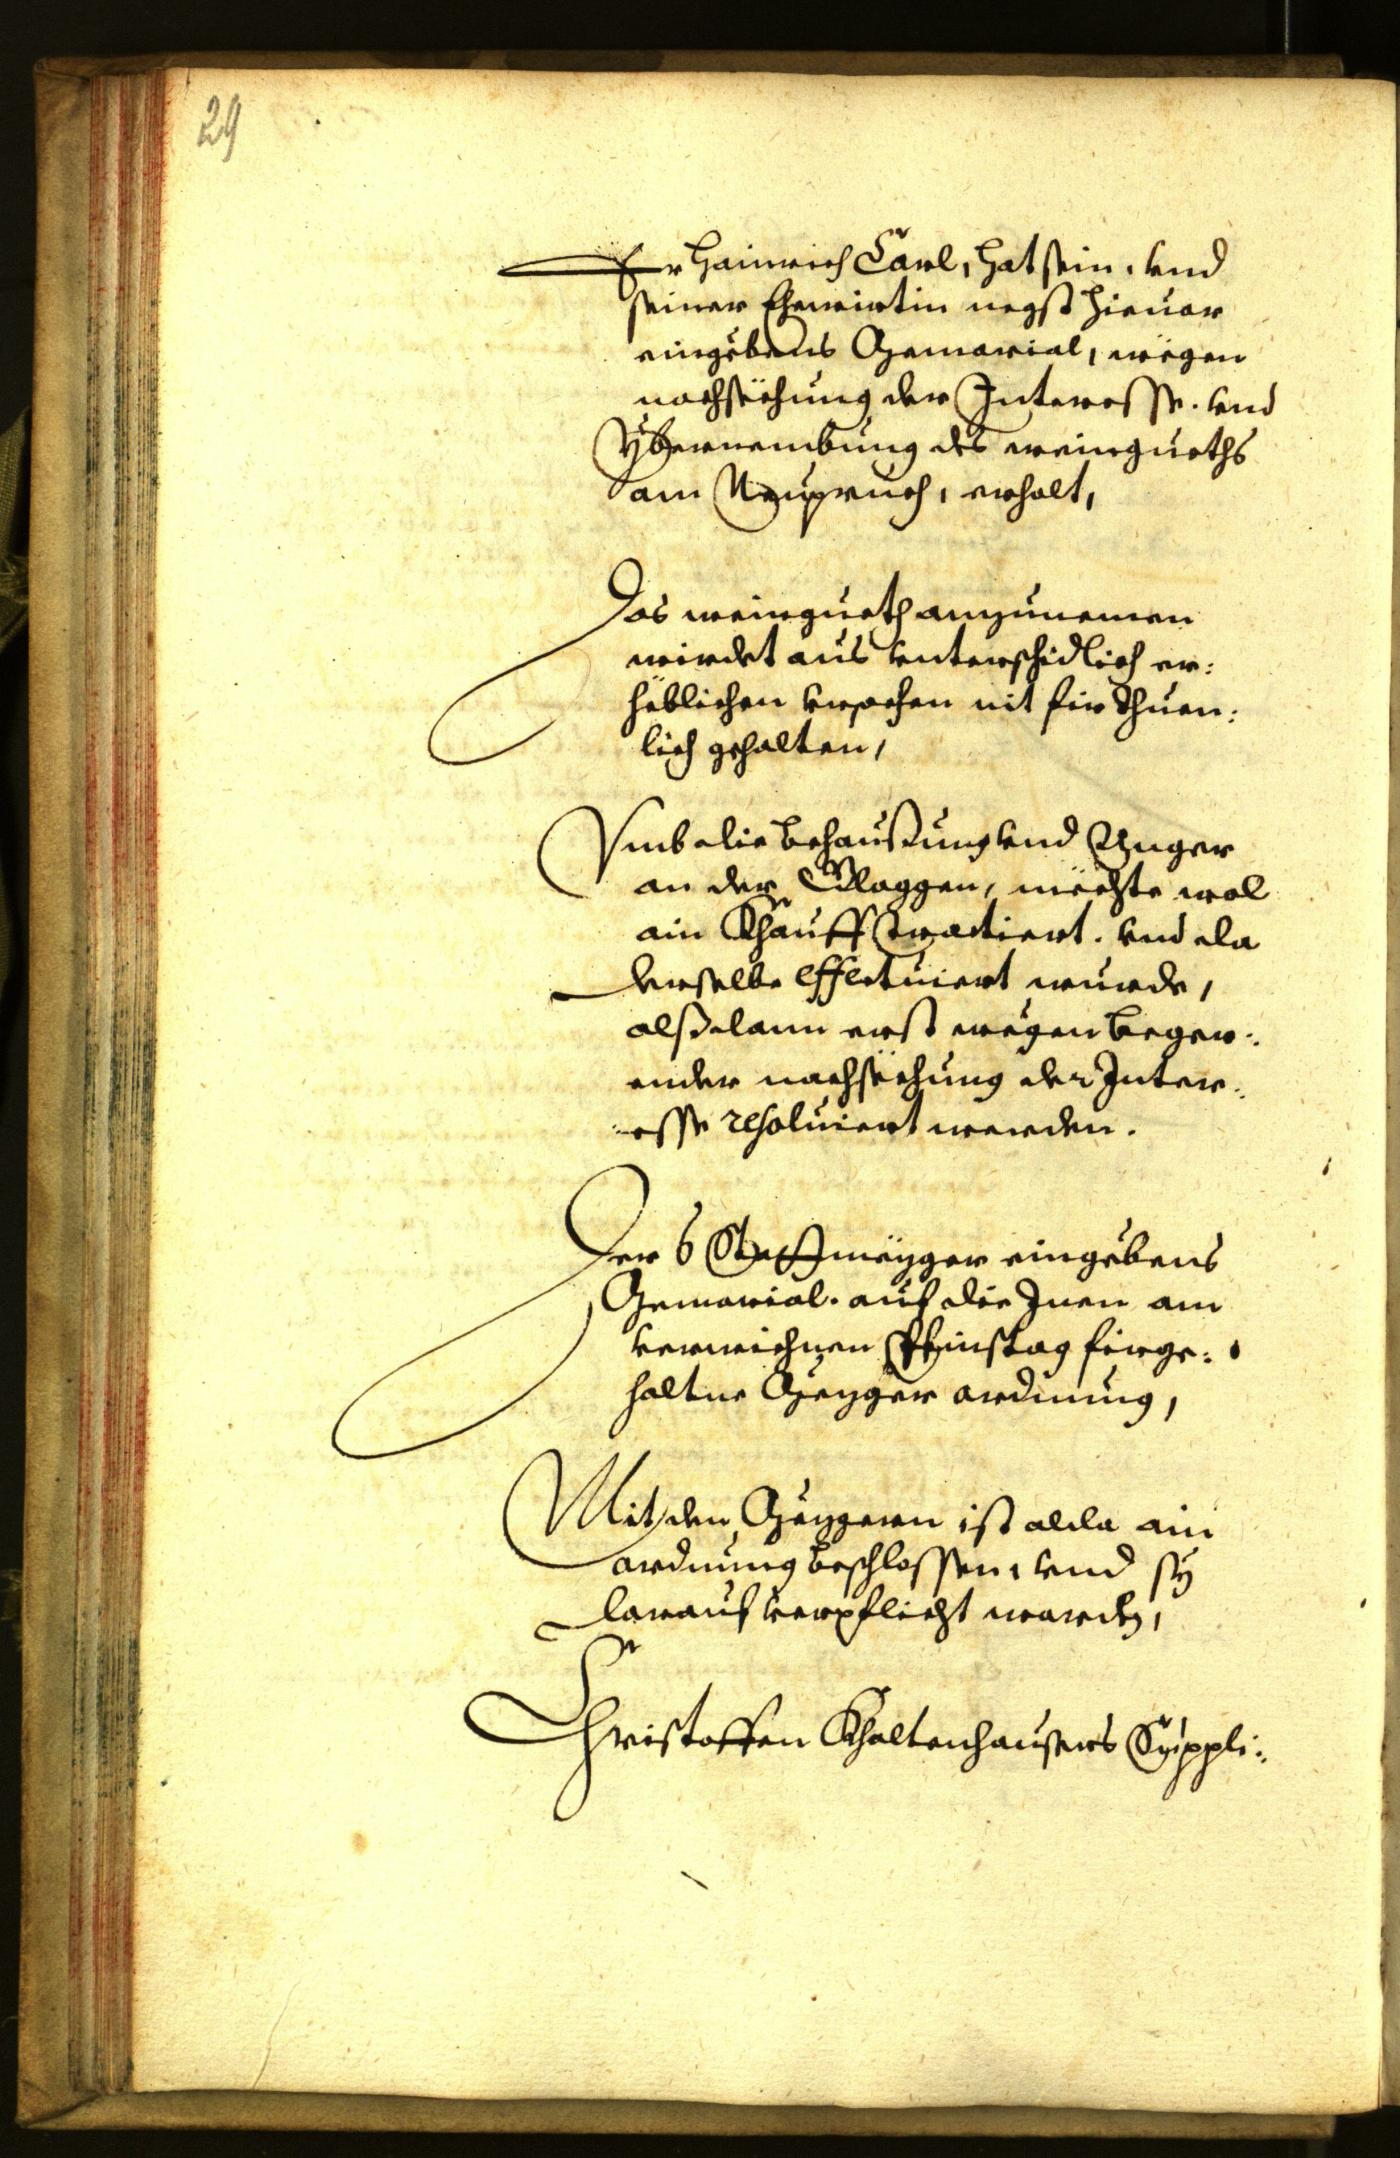 29
Er Hainrich Carl, hat sein. vnd
seiner Ehewirtin negst hieuor
eingebens Gemorial, wegen
nachsechung der Interesse. vnd
Ybernembung des weingueths
am Neupruch, erholt,
Das weingueth anzunemen
wirdet aus vnterschidlich er:
heblichen vrsachen nit für thuen:
lich gehalten,
Vmb die behausung vnd Anger
an der Cloggen, mechte wol
ain Khauff tractiert. vnd da
derselbe effectuiert wurde,
alßdann erst wegen beger:
ender nachsechung der Inter:
esse resoluiert werden.
Der 6 Statmezger eingebens
Gemorial. auf die Inen am
verwichnen Pfinstag fürge:
haltne Mezger ordnung,
Mit den Mezgern ist alda ain
ordnung beschlossen, vnd sy
darauf verpflicht worden,
Christoffen Khaltenhausers Suppli: